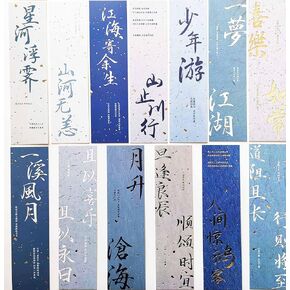 星河浮霁
山河无恙
江海寄余生
山止川行
少年游
一梦
江湖
喜樂
如常
一溪風月
且以喜乐
且以永日
月升
滄海
旦逢良辰
顺颂时宜
人间惊鸿客
道阻且长
行则将至